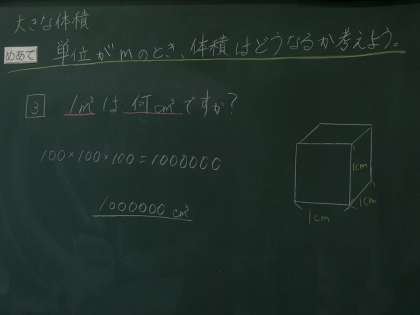 大きな体積
めあて 単位がmのとき、体積はどうなるか考えよう。
3 1m³は何cm³ですか?
100×100×100=1000000
1000000 cm³
1cm
1cm
1cm